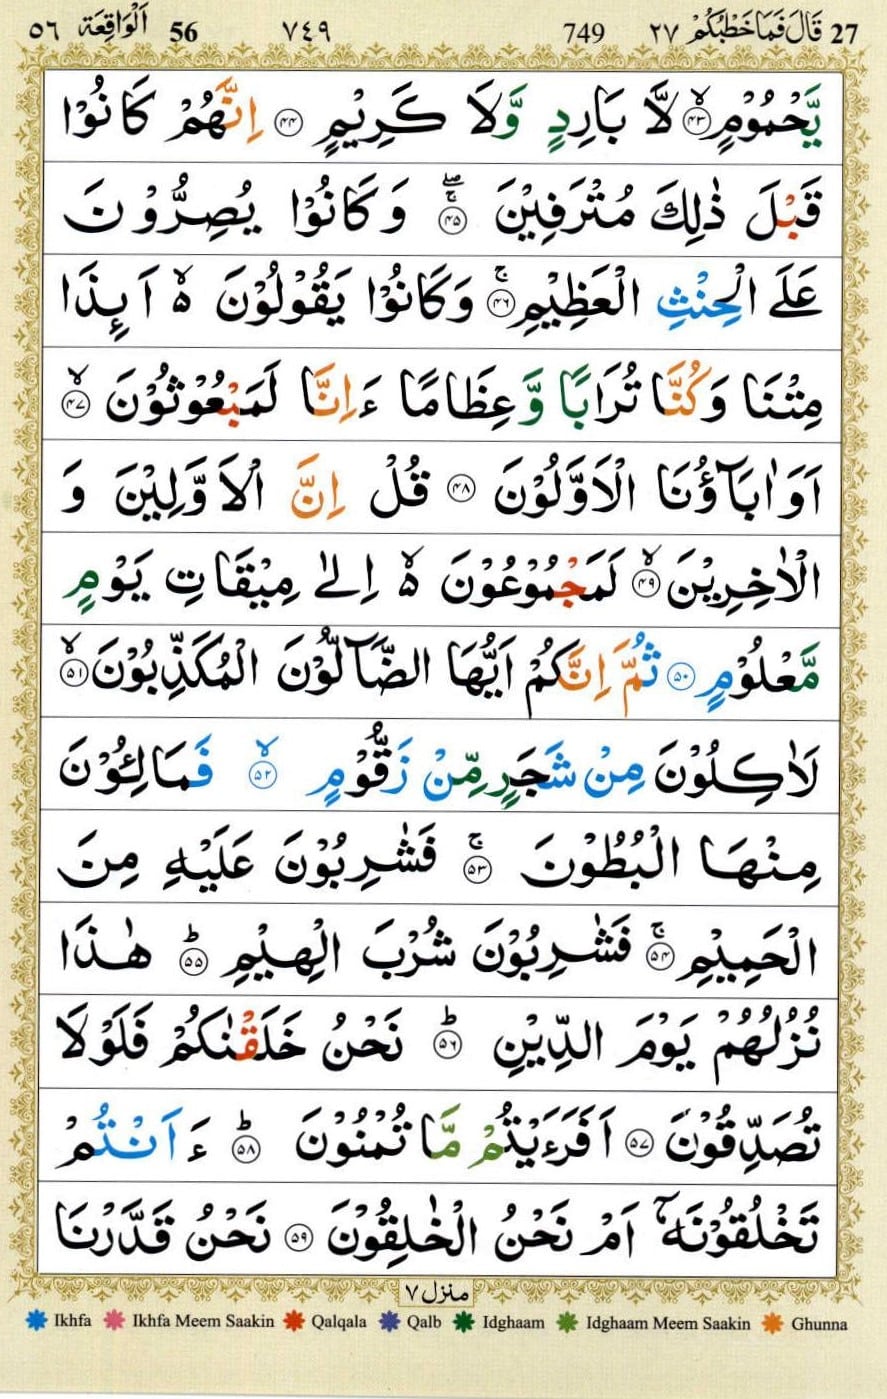 ٥٦ اَلْوَاقِعَة 56 ٧٤٩ 749 قَالَ فَمَا خَطْبُكُمْ ٢٧ 27
يَّحْمُوْمٍ ۙ‏﴿۴۳﴾ لَّا بَارِدٍ وَّلَا كَرِيْمٍ ﴿۴۴﴾ اِنَّهُمْ كَانُوْا
قَبْلَ ذٰلِكَ مُتْرَفِيْنَ ۚۖ ﴿۴۵﴾ وَكَانُوْا يُصِرُّوْنَ
عَلَى الْحِنْثِ الْعَظِيْمِ ۚ ﴿۴۶﴾ وَكَانُوْا يَقُوْلُوْنَ ۙ۬ اَئِذَا
مِتْنَا وَكُنَّا تُرَابًا وَّعِظَامًا ءَاِنَّا لَمَبْعُوْثُوْنَ ۙ ﴿۴۷﴾
اَوَاٰبَآؤُنَا الْاَوَّلُوْنَ ﴿۴۸﴾ قُلْ اِنَّ الْاَوَّلِيْنَ وَ
الْاٰخِرِيْنَ ۙ ﴿۴۹﴾ لَمَجْمُوْعُوْنَ ۙ۬ اِلٰى مِيْقَاتِ يَوْمٍ
مَّعْلُوْمٍ ﴿۵۰﴾ ثُمَّ اِنَّكُمْ اَيُّهَا الضَّآلُّوْنَ الْمُكَذِّبُوْنَ ۙ ﴿۵۱﴾
لَاٰكِلُوْنَ مِنْ شَجَرٍ مِّنْ زَقُّوْمٍ ۙ ﴿۵۲﴾ فَمَالِـُٔوْنَ
مِنْهَا الْبُطُوْنَ ۚ ﴿۵۳﴾ فَشٰرِبُوْنَ عَلَيْهِ مِنَ
الْحَمِيْمِ ۚ ﴿۵۴﴾ فَشٰرِبُوْنَ شُرْبَ الْهِيْمِ ؕ ﴿۵۵﴾ هٰذَا
نُزُلُهُمْ يَوْمَ الدِّيْنِ ؕ ﴿۵۶﴾ نَحْنُ خَلَقْنٰكُمْ فَلَوْلَا
تُصَدِّقُوْنَ ﴿۵۷﴾ اَفَرَءَيْتُمْ مَّا تُمْنُوْنَ ؕ ﴿۵۸﴾ ءَاَنْتُمْ
تَخْلُقُوْنَهٗۤ اَمْ نَحْنُ الْخٰلِقُوْنَ ﴿۵۹﴾ نَحْنُ قَدَّرْنَا
منزل ٧
Ikhfa Ikhfa Meem Saakin Qalqala Qalb Idghaam Idghaam Meem Saakin Ghunna